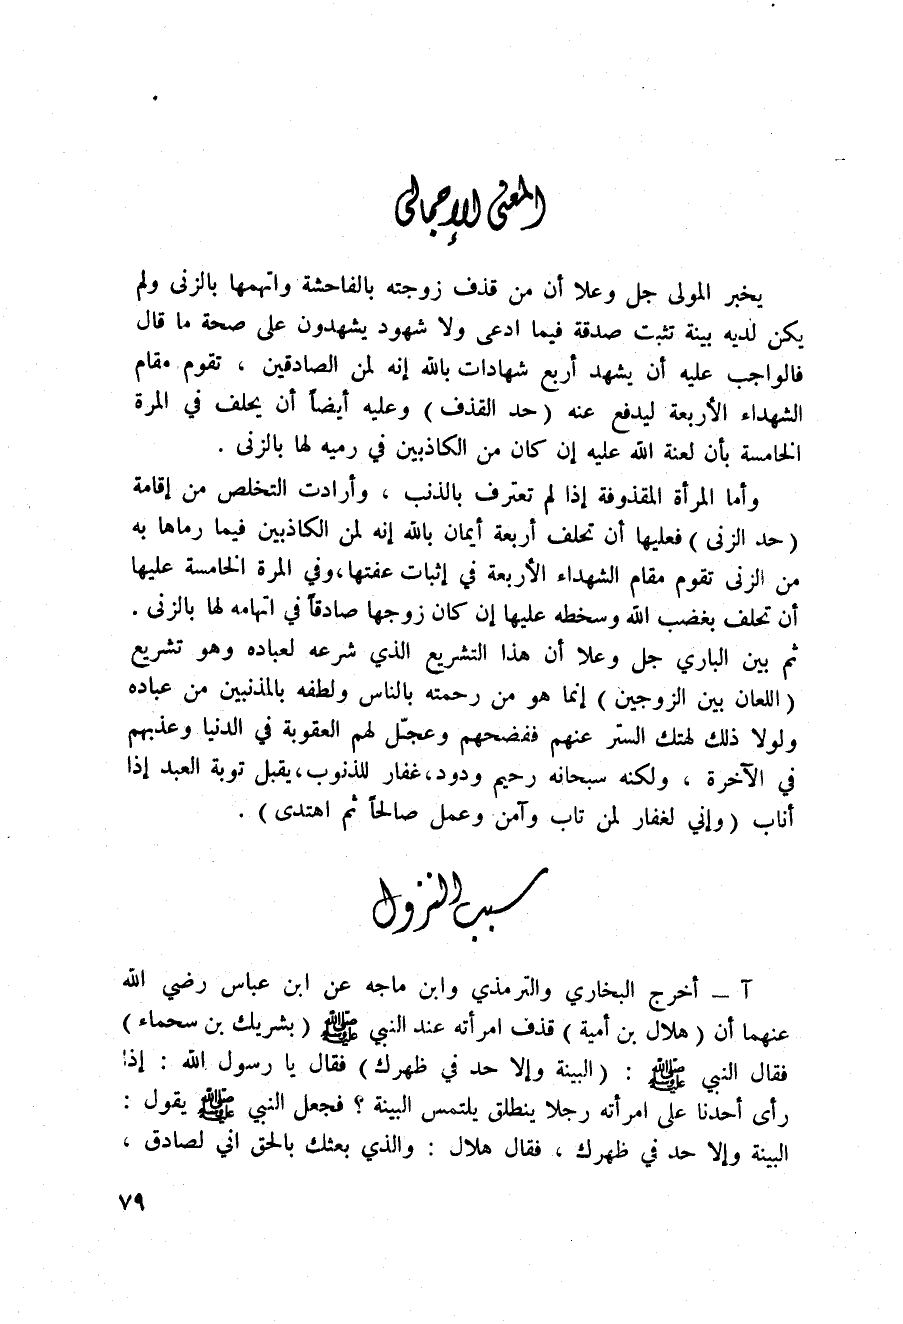 المعنى الإجمالي
يخبر المولى جل وعلا أن من قذف زوجته بالفاحشة واتهمها بالزنى ولم
يكن لديه بينة تثبت صدقة فيما ادعى ولا شهود يشهدون على صحة ما قال
فالواجب عليه أن يشهد أربع شهادات بالله إنه لمن الصادقين ، تقوم مقام
الشهداء الأربعة ليدفع عنه ( حد القذف ) وعليه أيضاً أن يحلف في المرة
الخامسة بأن لعنة الله عليه إن كان من الكاذبين في رميه لها بالزنى .
وأما المرأة المقذوفة إذا لم تعترف بالذنب ، وأرادت التخلص من إقامة
( حد الزنى ) فعليها أن تحلف أربعة أيمان بالله إنه لمن الكاذبين فيما رماها به
من الزنى تقوم مقام الشهداء الأربعة في إثبات عفتها،وفي المرة الخامسة عليها
أن تحلف بغضب الله وسخطه عليها إن كان زوجها صادقاً في اتهامه لها بالزنى .
ثم بين الباري جل وعلا أن هذا التشريع الذي شرعه لعباده وهو تشريع
( اللعان بين الزوجين ) إنما هو من رحمته بالناس ولطفه بالمذنبين من عباده
ولولا ذلك لهتك الستر عنهم ففضحهم وعجّل لهم العقوبة في الدنيا وعذبهم
في الآخرة ، ولكنه سبحانه رحيم ودود،غفار للذنوب،يقبل توبة العبد إذا
أناب ( وإني لغفار لمن تاب وآمن وعمل صالحاً ثم اهتدى ) .
سبب النزول
آ – أخرج البخاري والترمذي وابن ماجه عن ابن عباس رضي الله
عنهما أن ( هلال بن أمية ) قذف امرأته عند النبي ﷺ ( بشريك بن سحماء )
فقال النبي ﷺ : ( البينة وإلا حد في ظهرك ) فقال يا رسول الله : إذا
رأى أحدنا على امرأته رجلا ينطلق يلتمس البينة ؟ فجعل النبي ﷺ يقول :
البينة وإلا حد في ظهرك ، فقال هلال : والذي بعثك بالحق اني لصادق ،
٧٩